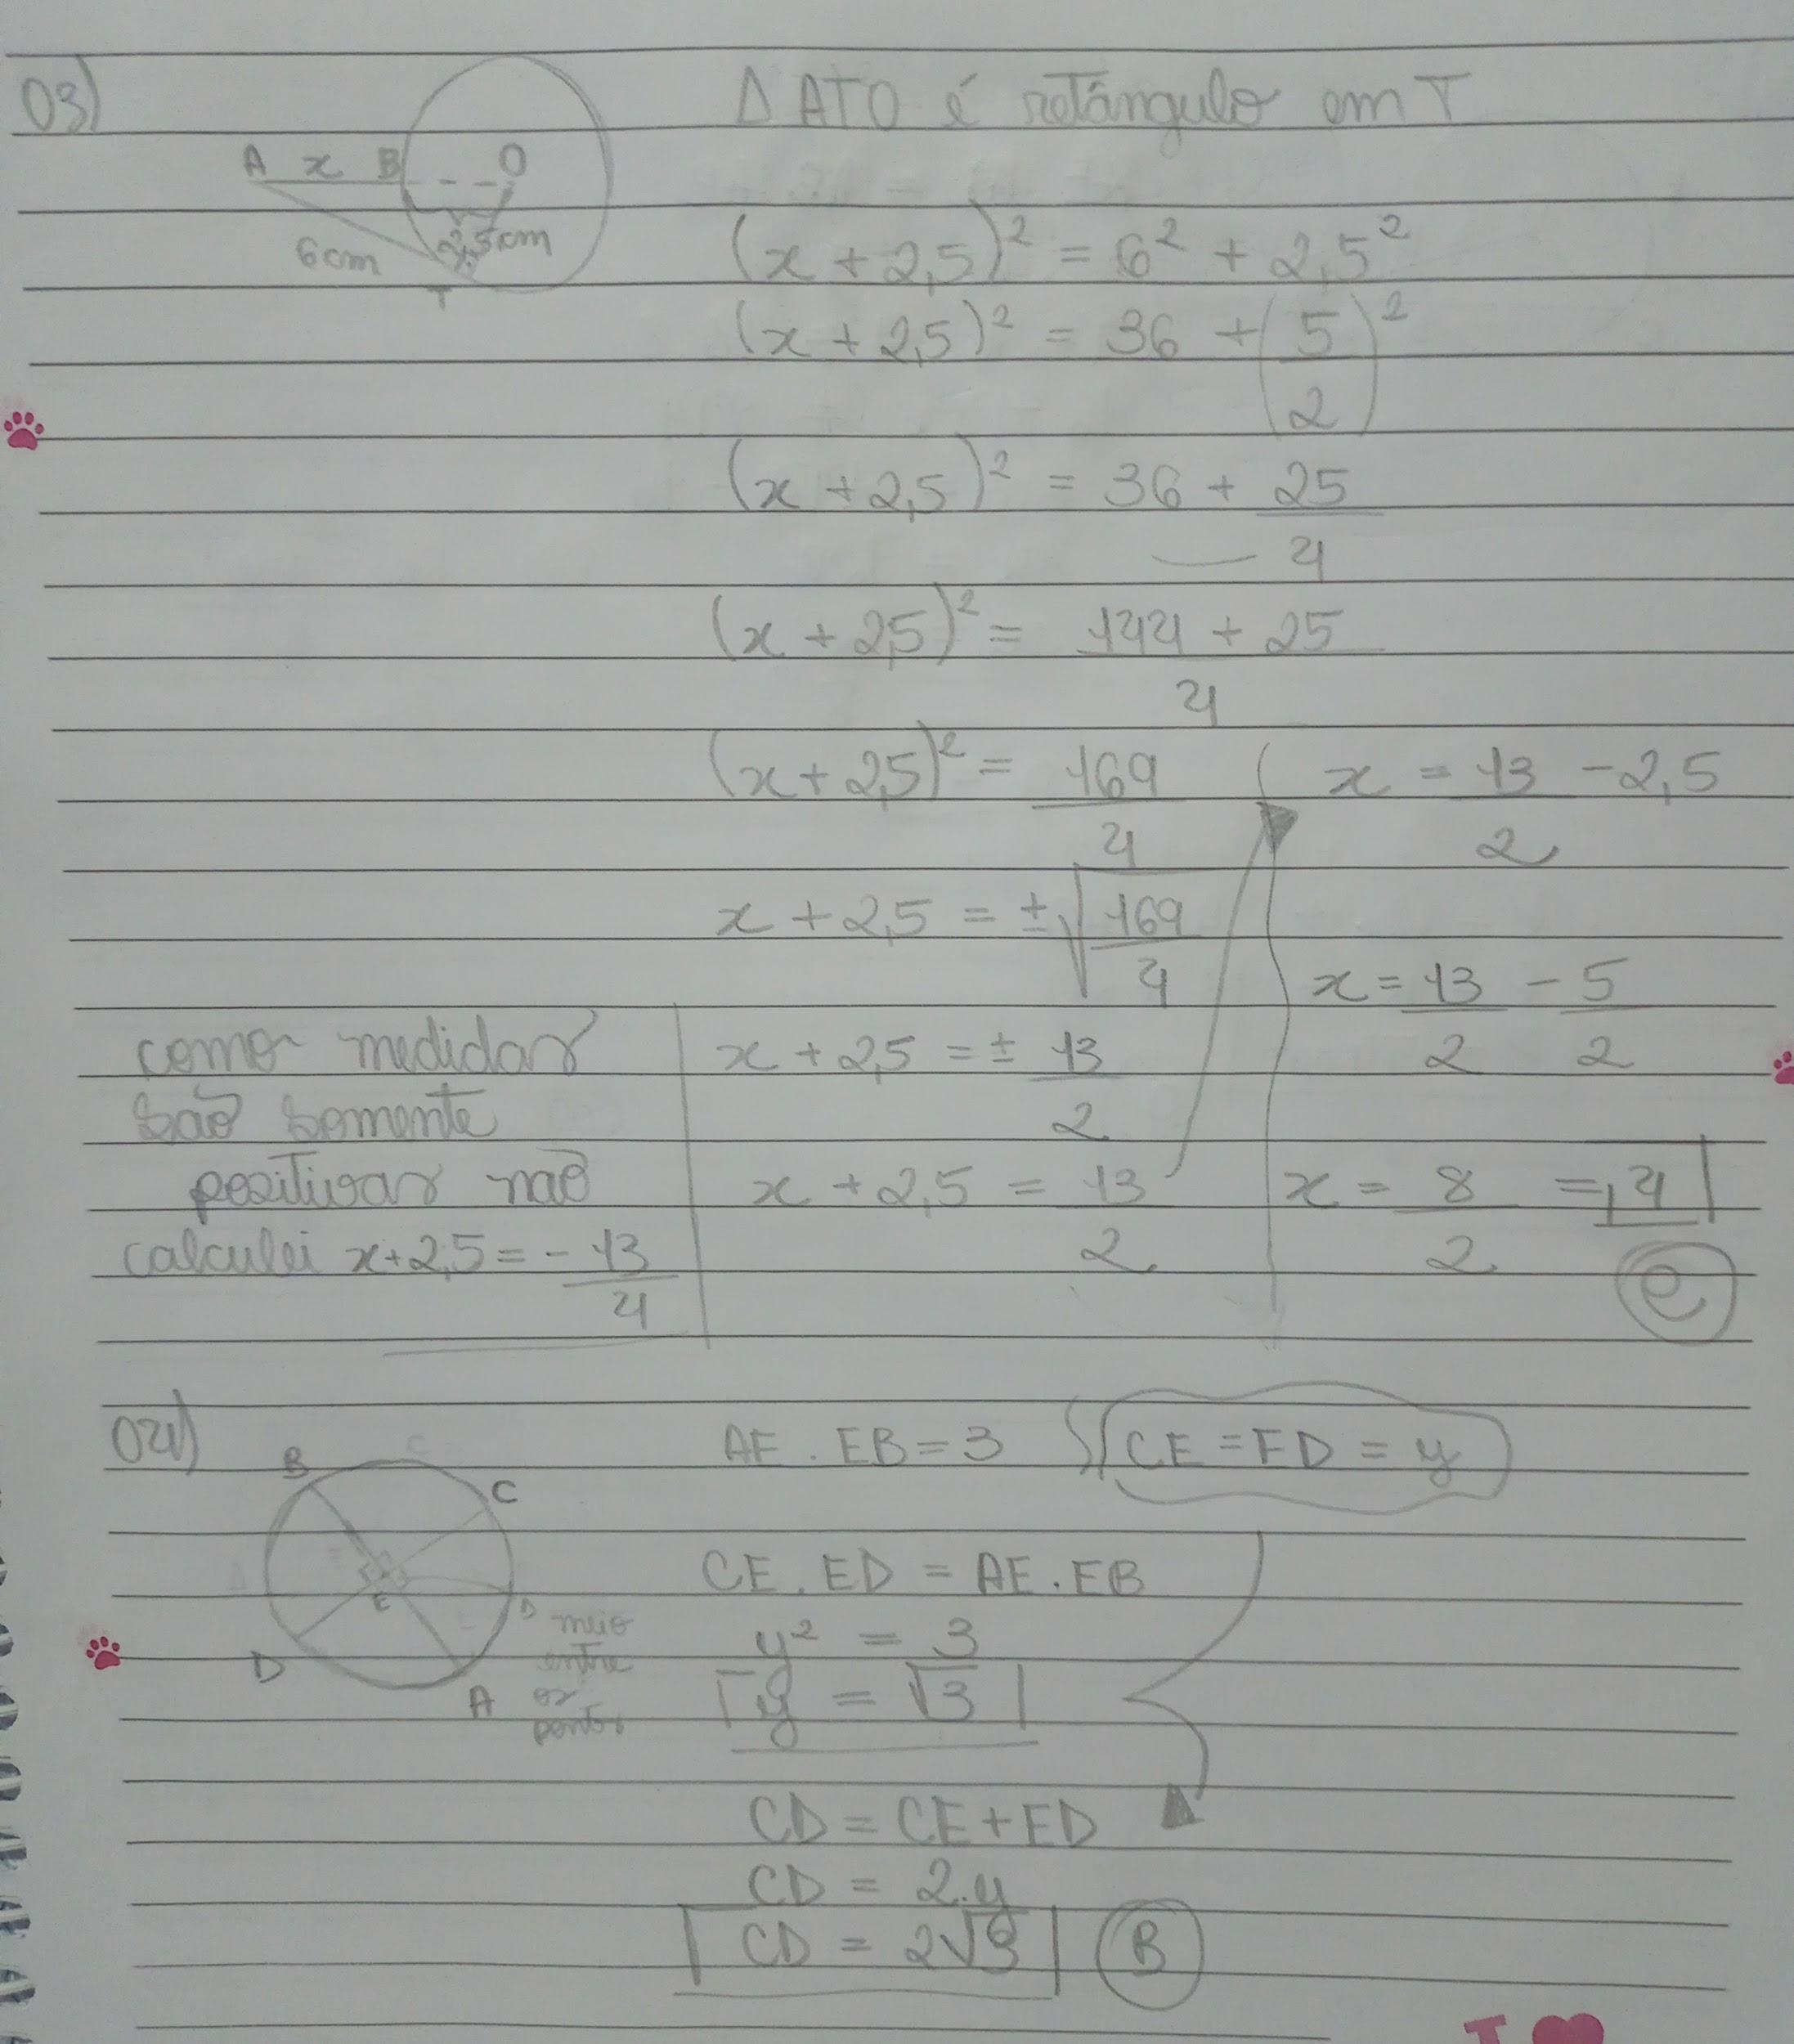 03)
A x B O
2,5cm
6cm
T
Δ ATO é retângulo em T
(x + 2,5)² = 6² + 2,5²
(x + 2,5)² = 36 + (5/2)²
(x + 2,5)² = 36 + 25/4
(x + 2,5)² = 144 + 25/4
(x + 2,5)² = 169/4
x + 2,5 = ±√169/4
x + 2,5 = ± 13/2
x + 2,5 = 13/2
x = 13/2 - 2,5
x = 13/2 - 5/2
x = 8/2 = 4
e
como medidas
são somente
positivas não
calculei x+2,5 = - 13/4
04)
B
C
E
D
A
D meio
entre
os
pontos
AE . EB = 3
CE = ED = y
CE . ED = AE . EB
y² = 3
y = √3
CD = CE + ED
CD = 2.y
CD = 2√3
B
I